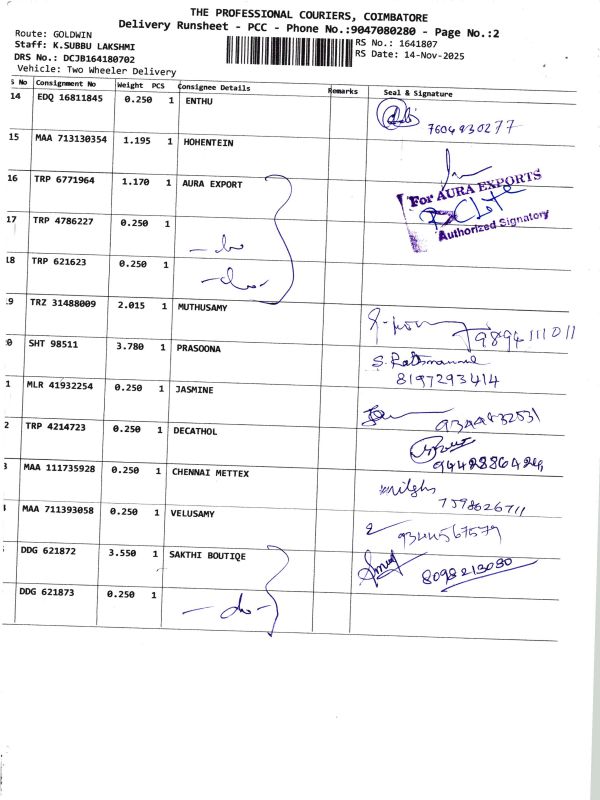 THE PROFESSIONAL COURIERS, COIMBATORE
Delivery Runsheet - PCC - Phone No.:9047080280 - Page No.:2
Route: GOLDWIN
Staff: K.SUBBU LAKSHMI
RS No.: 1641807
DRS No.: DCJB164180702
RS Date: 14-Nov-2025
Vehicle: Two Wheeler Delivery
s No Consignment No Weight PCS Consignee Details Remarks Seal & Signature
14 EDQ 16811845 0.250 1 ENTHU
7604830277
15 MAA 713130354 1.195 1 HOHENTEIN
16 TRP 6771964 1.170 1 AURA EXPORT
For AURA EXPORTS
Authorized Signatory
17 TRP 4786227 0.250 1
-do-
18 TRP 621623 0.250 1
-do-
19 TRZ 31488009 2.015 1 MUTHUSAMY
9894111011
0 SHT 98511 3.780 1 PRASOONA
8197293414
1 MLR 41932254 0.250 1 JASMINE
9344832531
2 TRP 4214723 0.250 1 DECATHOL
3 MAA 111735928 0.250 1 CHENNAI METTEX
7598626711
MAA 711393058 0.250 1 VELUSAMY
9344567579
DDG 621872 3.550 1 SAKTHI BOUTIQE
8098213080
DDG 621873 0.250 1
-do-